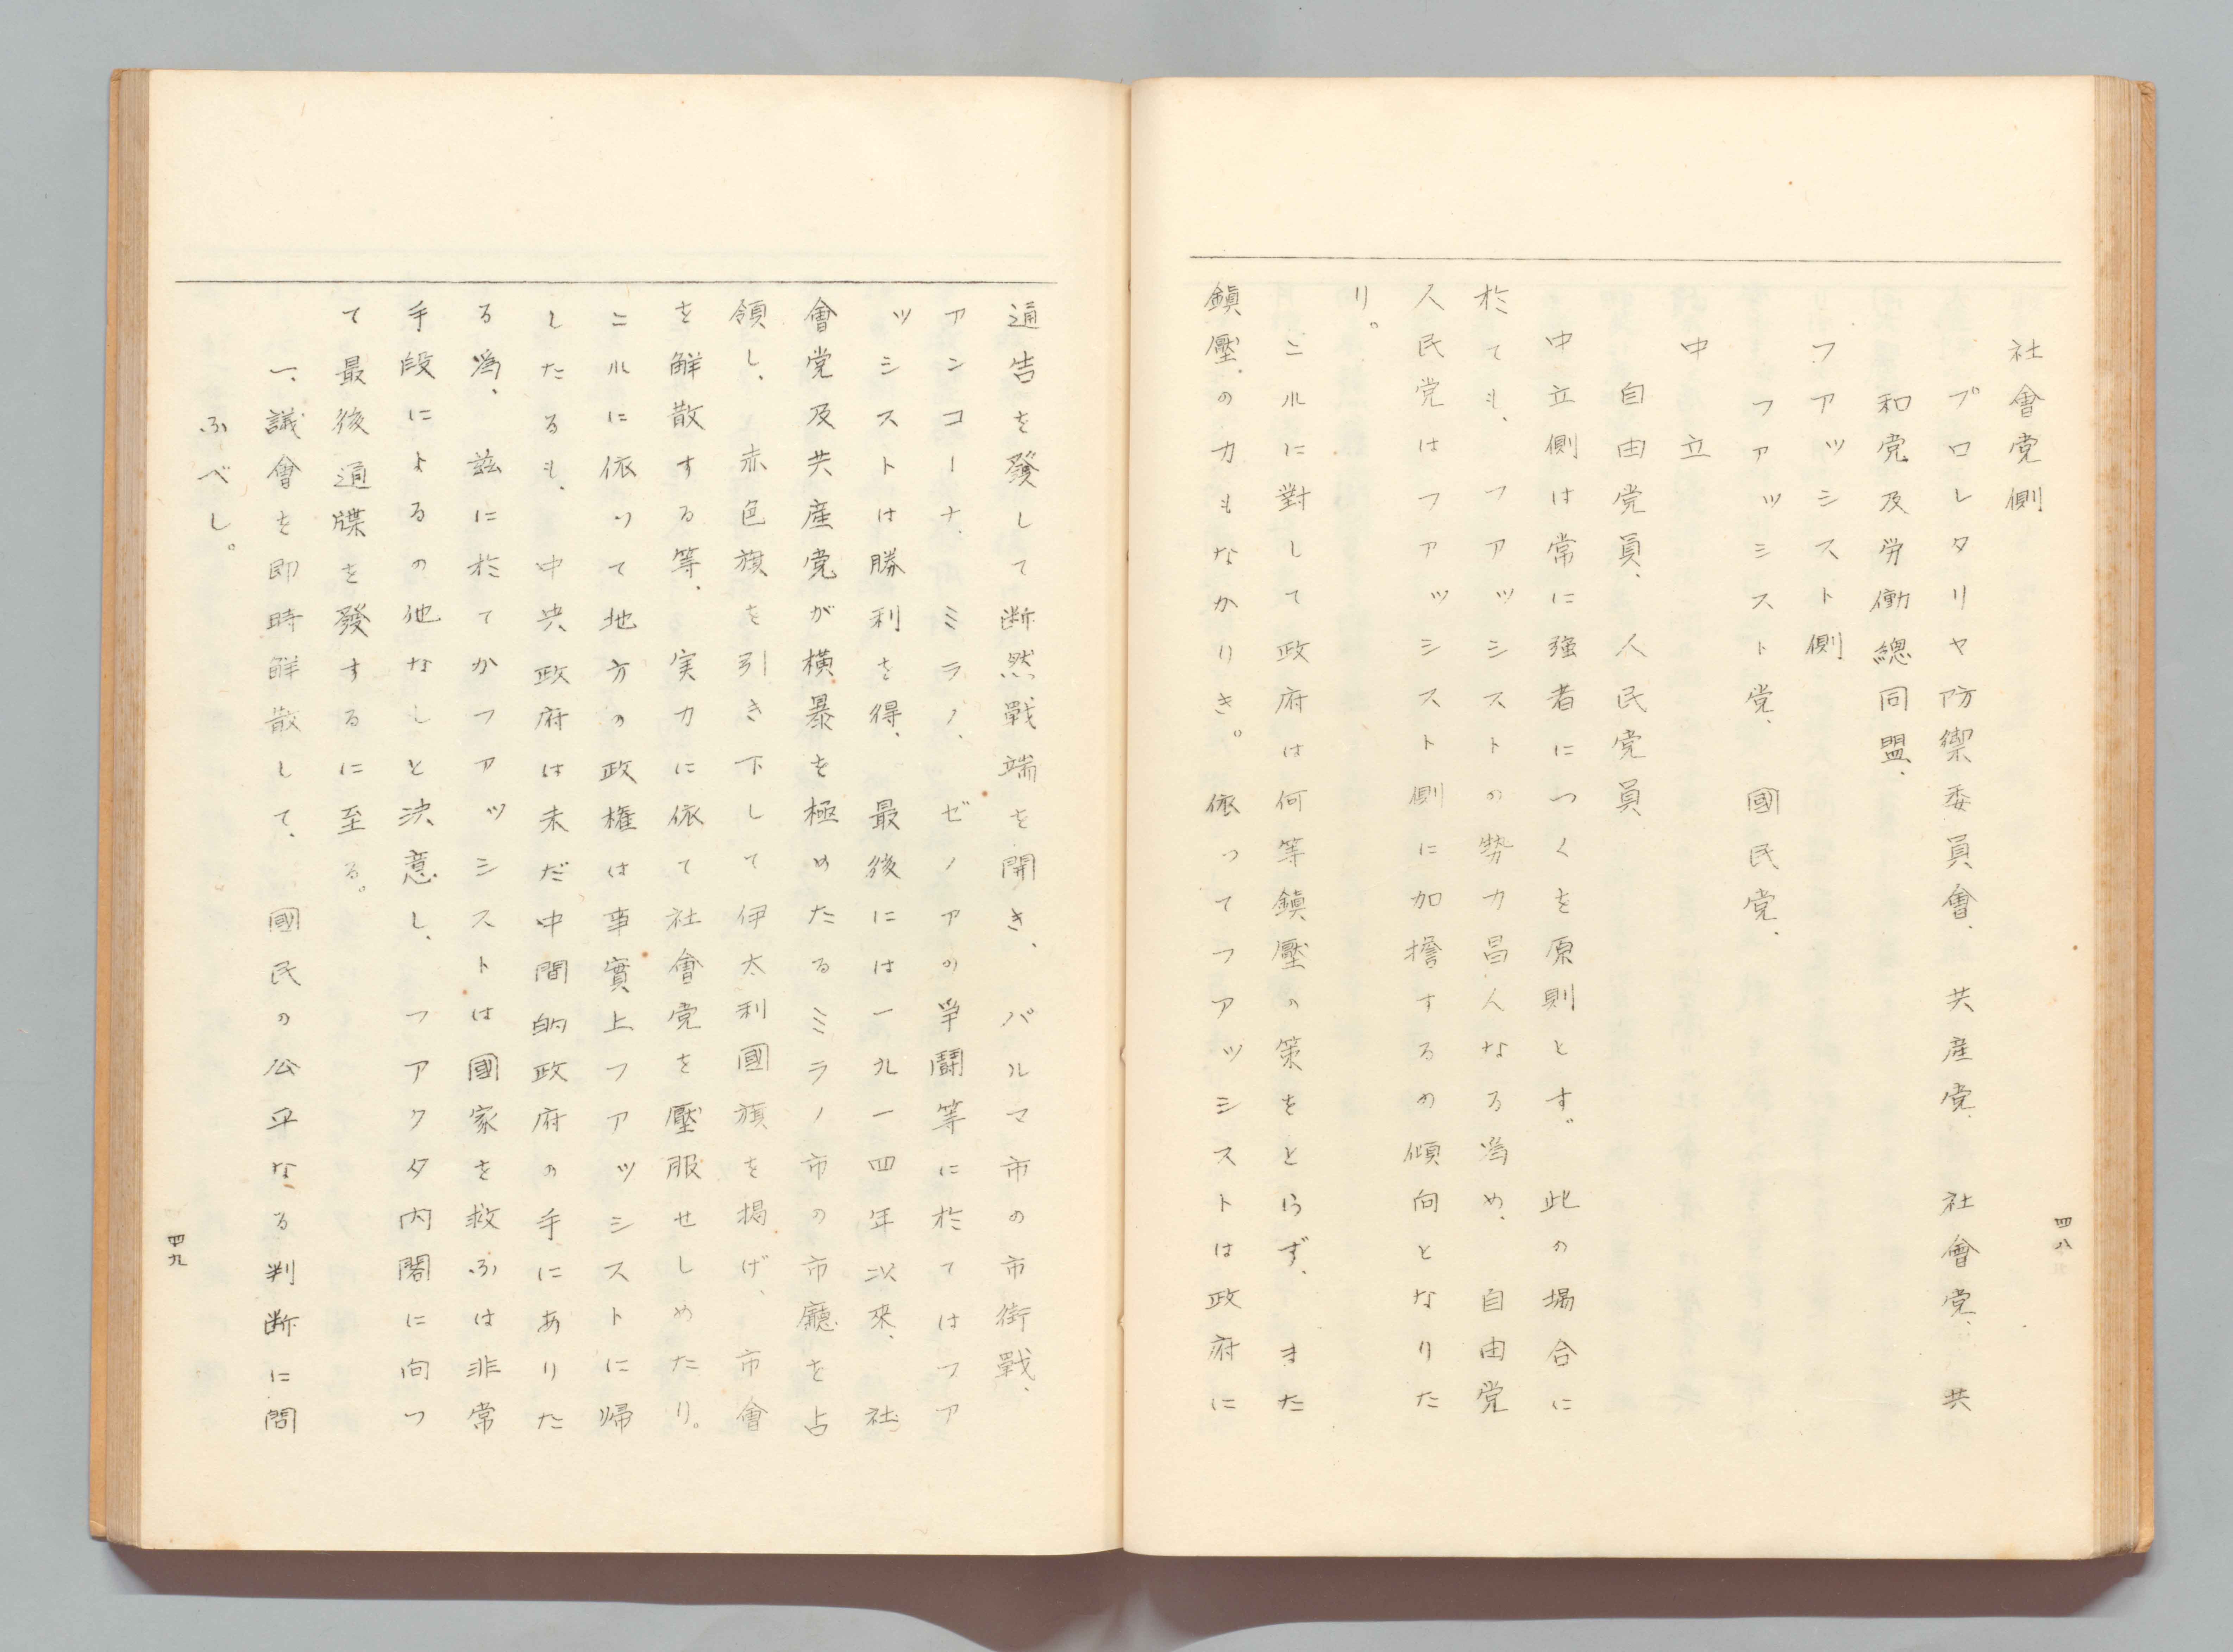 社會党側
プロレタリヤ防禦委員會、共産党、社會党、共
和党及労働總同盟、
フアツシスト側
フアツシスト党、國民党、
中立
自由党員、人民党員
中立側は常に强者につくを原則とす。此の場合に
於ても、フアツシストの勢力昌んなる為め、自由党
人民党はフアツシスト側に加擔するめ傾向となりた
り。
ニルに對して政府は何等鎭壓の策をとらず、また
鎭壓の力もなかりき。依つてフアツシストは政府に
四八
通告を發して断然戰端を開き、バルマ市の市街戰、
アンコーナ、ミラノ、ゼノアの爭鬪等に於てはフア
ツシストは勝利を得、最後には一九一四年以來、社
會党及共産党が横暴を極めたるミラノ市の市廳を占
領し、赤色旗を引き下して伊太利國旗を掲げ、市會
を觧散する等、実力に依て社會党を壓服せしめたり。
ニルに依つて地方の政権は事實上フアツシストに帰
したるも、中央政府は未だ中間的政府の手にありた
る為、茲に於てかフアツシストは國家を救ふは非常
手段によるの他なしと決意し、フアクタ内閣に向つ
て最後通牒を發するに至る。
一、議會を即時觧散して、國民の公平なる判断に問
ふべし。
四九